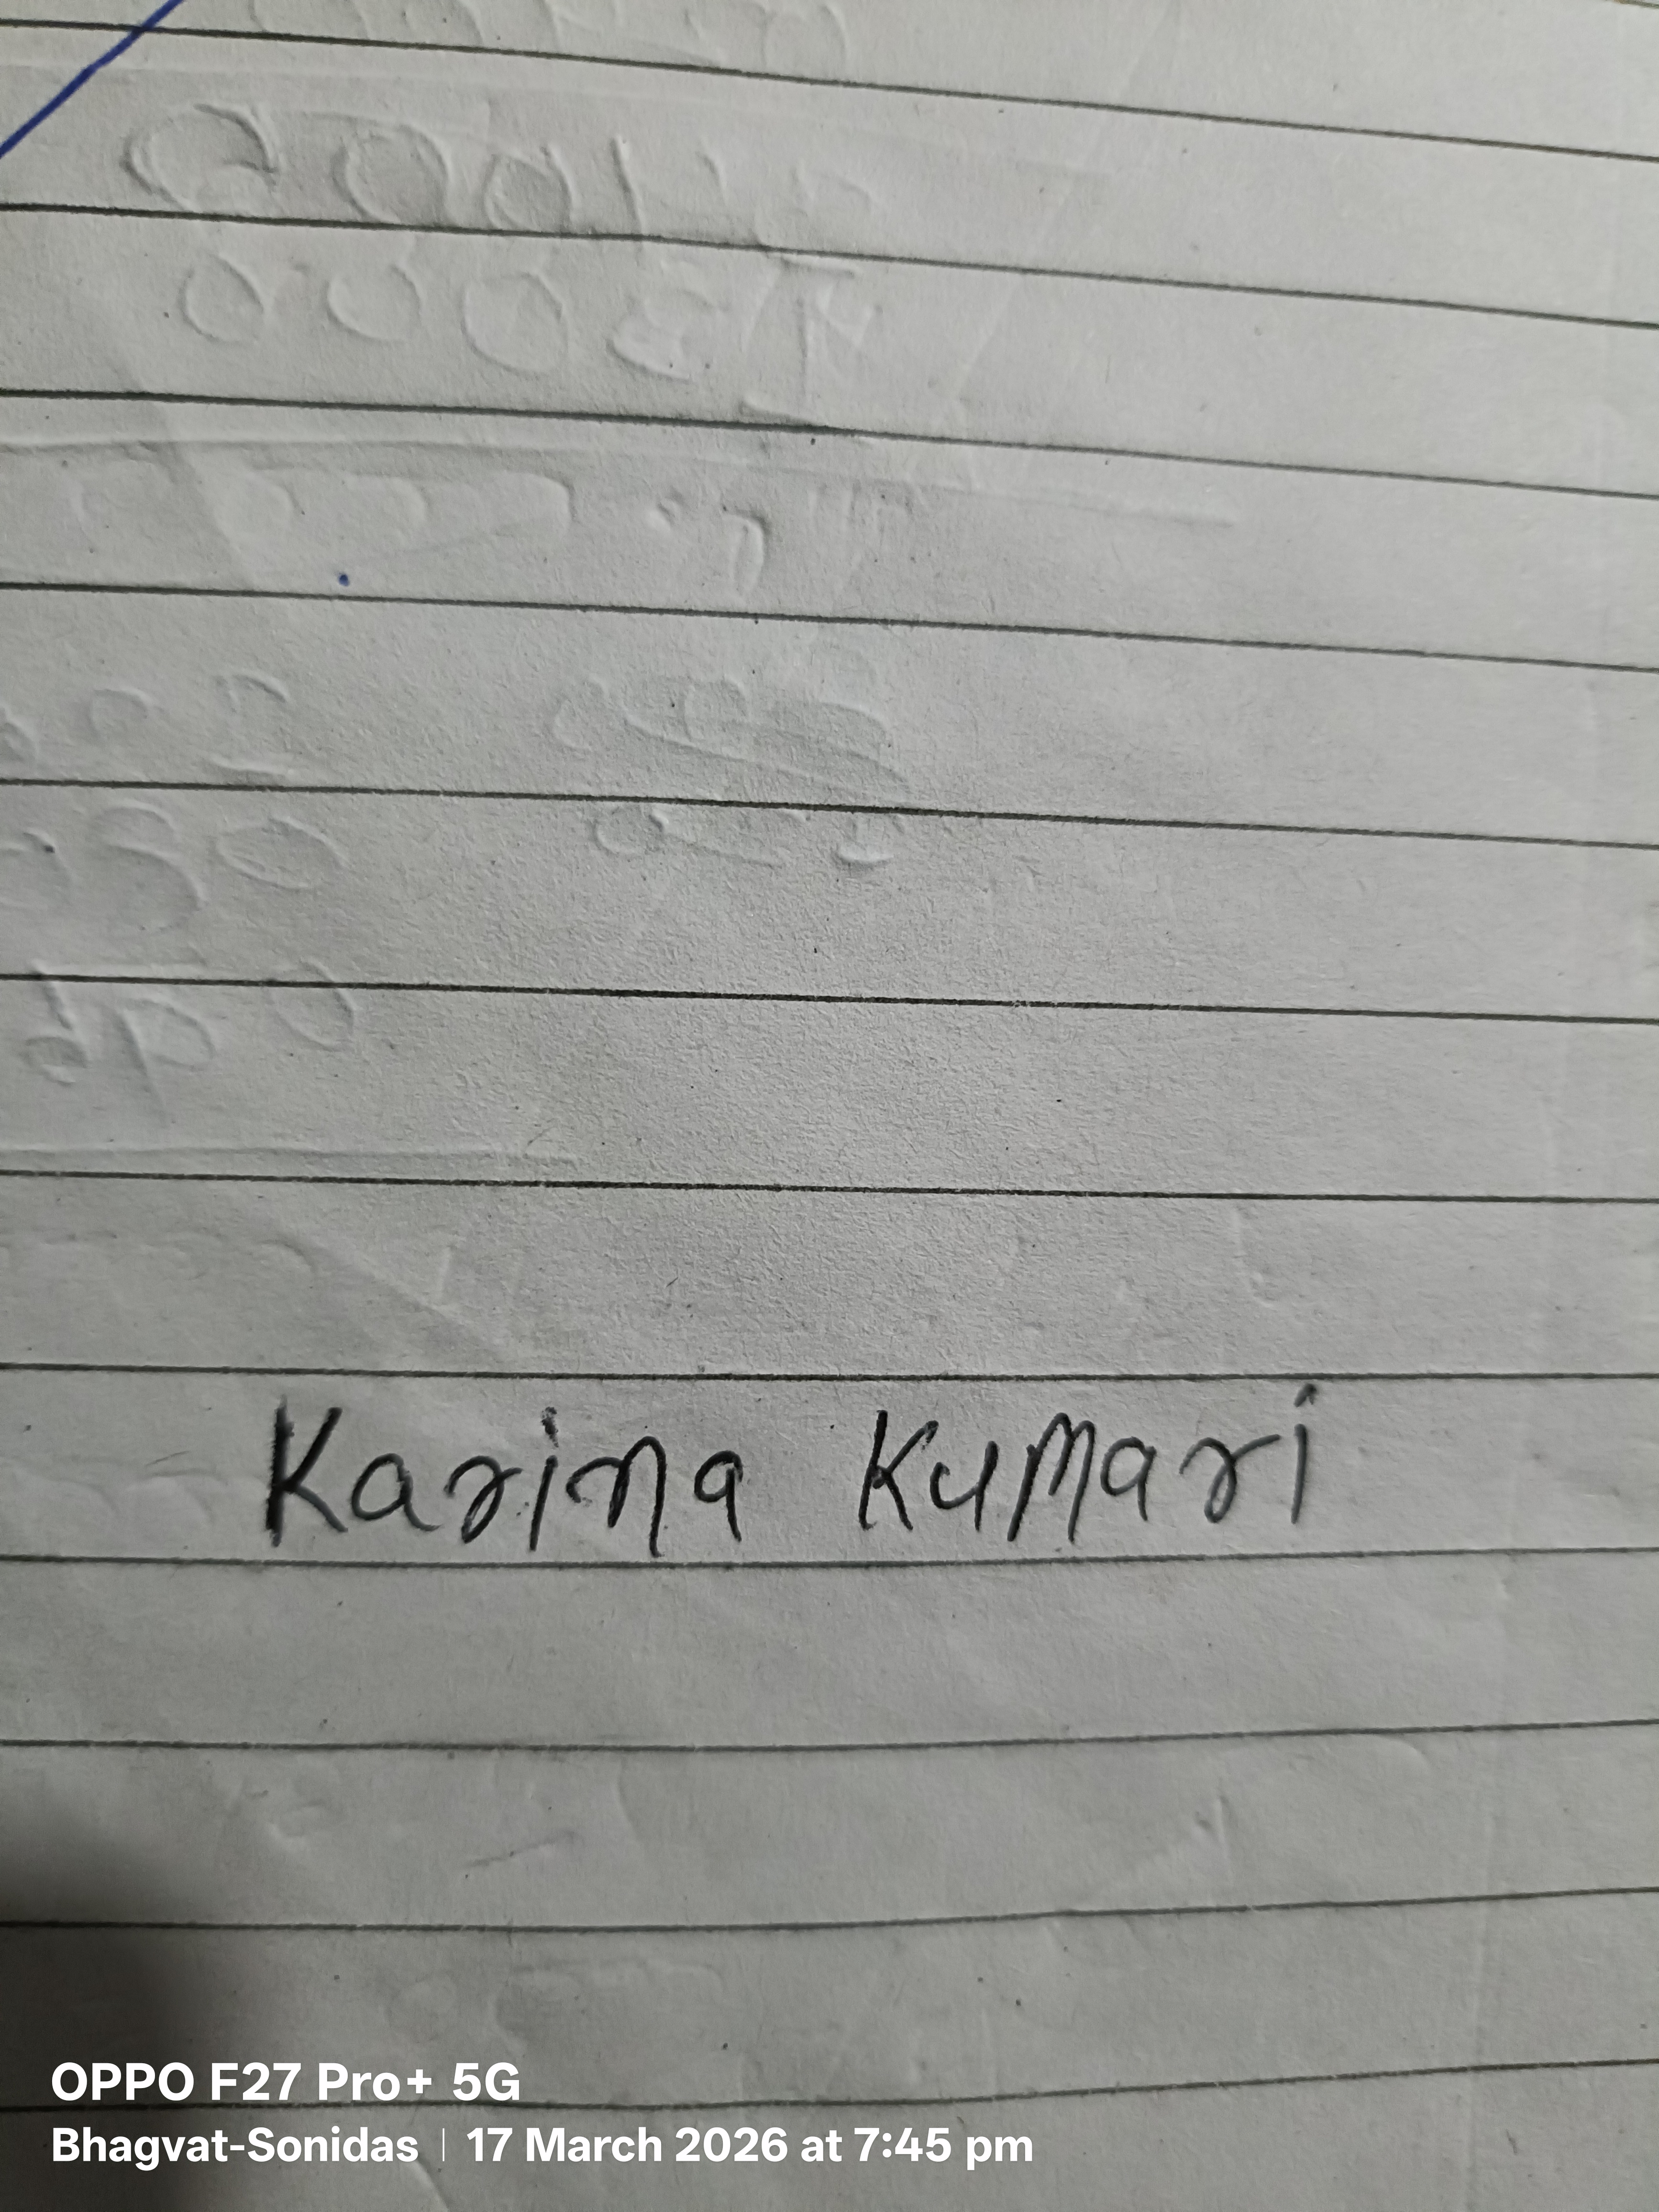 Karina Kumari
OPPO F27 Pro+ 5G
Bhagvat-Sonidas | 17 March 2026 at 7:45 pm